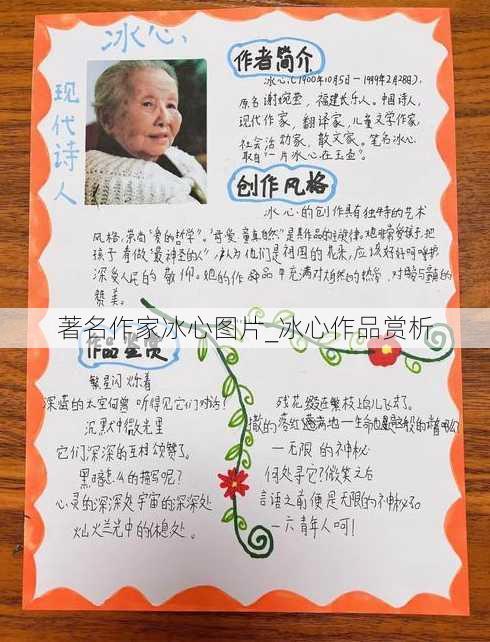 冰心
现代诗人
作者简介
冰心(1900年10月5日－1999年2月28日),
原名谢婉莹,福建长乐人。中国诗人,
现代作家,翻译家,儿童文学作家,
社会活动家,散文家。笔名冰心
取自“一片冰心在玉壶”。
创作风格
冰心的创作具有独特的艺术
风格,崇尚“爱的哲学”。
孩子看做“最神圣的人”,认为他们是祖国的花朵,应该好好呵护
深受人民的敬仰。她的作品中充满对大自然的热爱,
赞美。
著名作家冰心图片_冰心作品赏析
作品鉴赏
繁星闪烁着
深蓝的太空何曾听得见它们对话?
沉默中微光里
它们深深的互相颂赞了。
心灵的深深处宇宙的深深处
灿烂光中的休息处。
残花缀在繁枝上鸟儿飞去了。
撒的落红满地
一无限的神秘
何处寻它?微笑之后
言语之前便是无限的神秘
青年人呵!